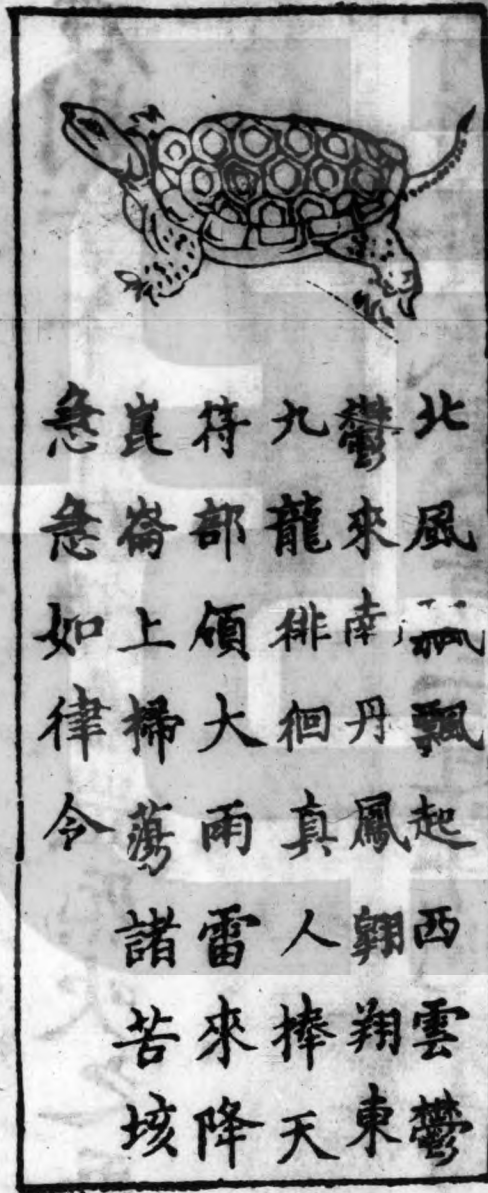 北風飄飄起西雲鬱
鬱來南丹鳳翱翔東
九龍徘徊真人捧天
符部領大雨雷來降
崑崙上掃蕩諸苦垓
急急如律令